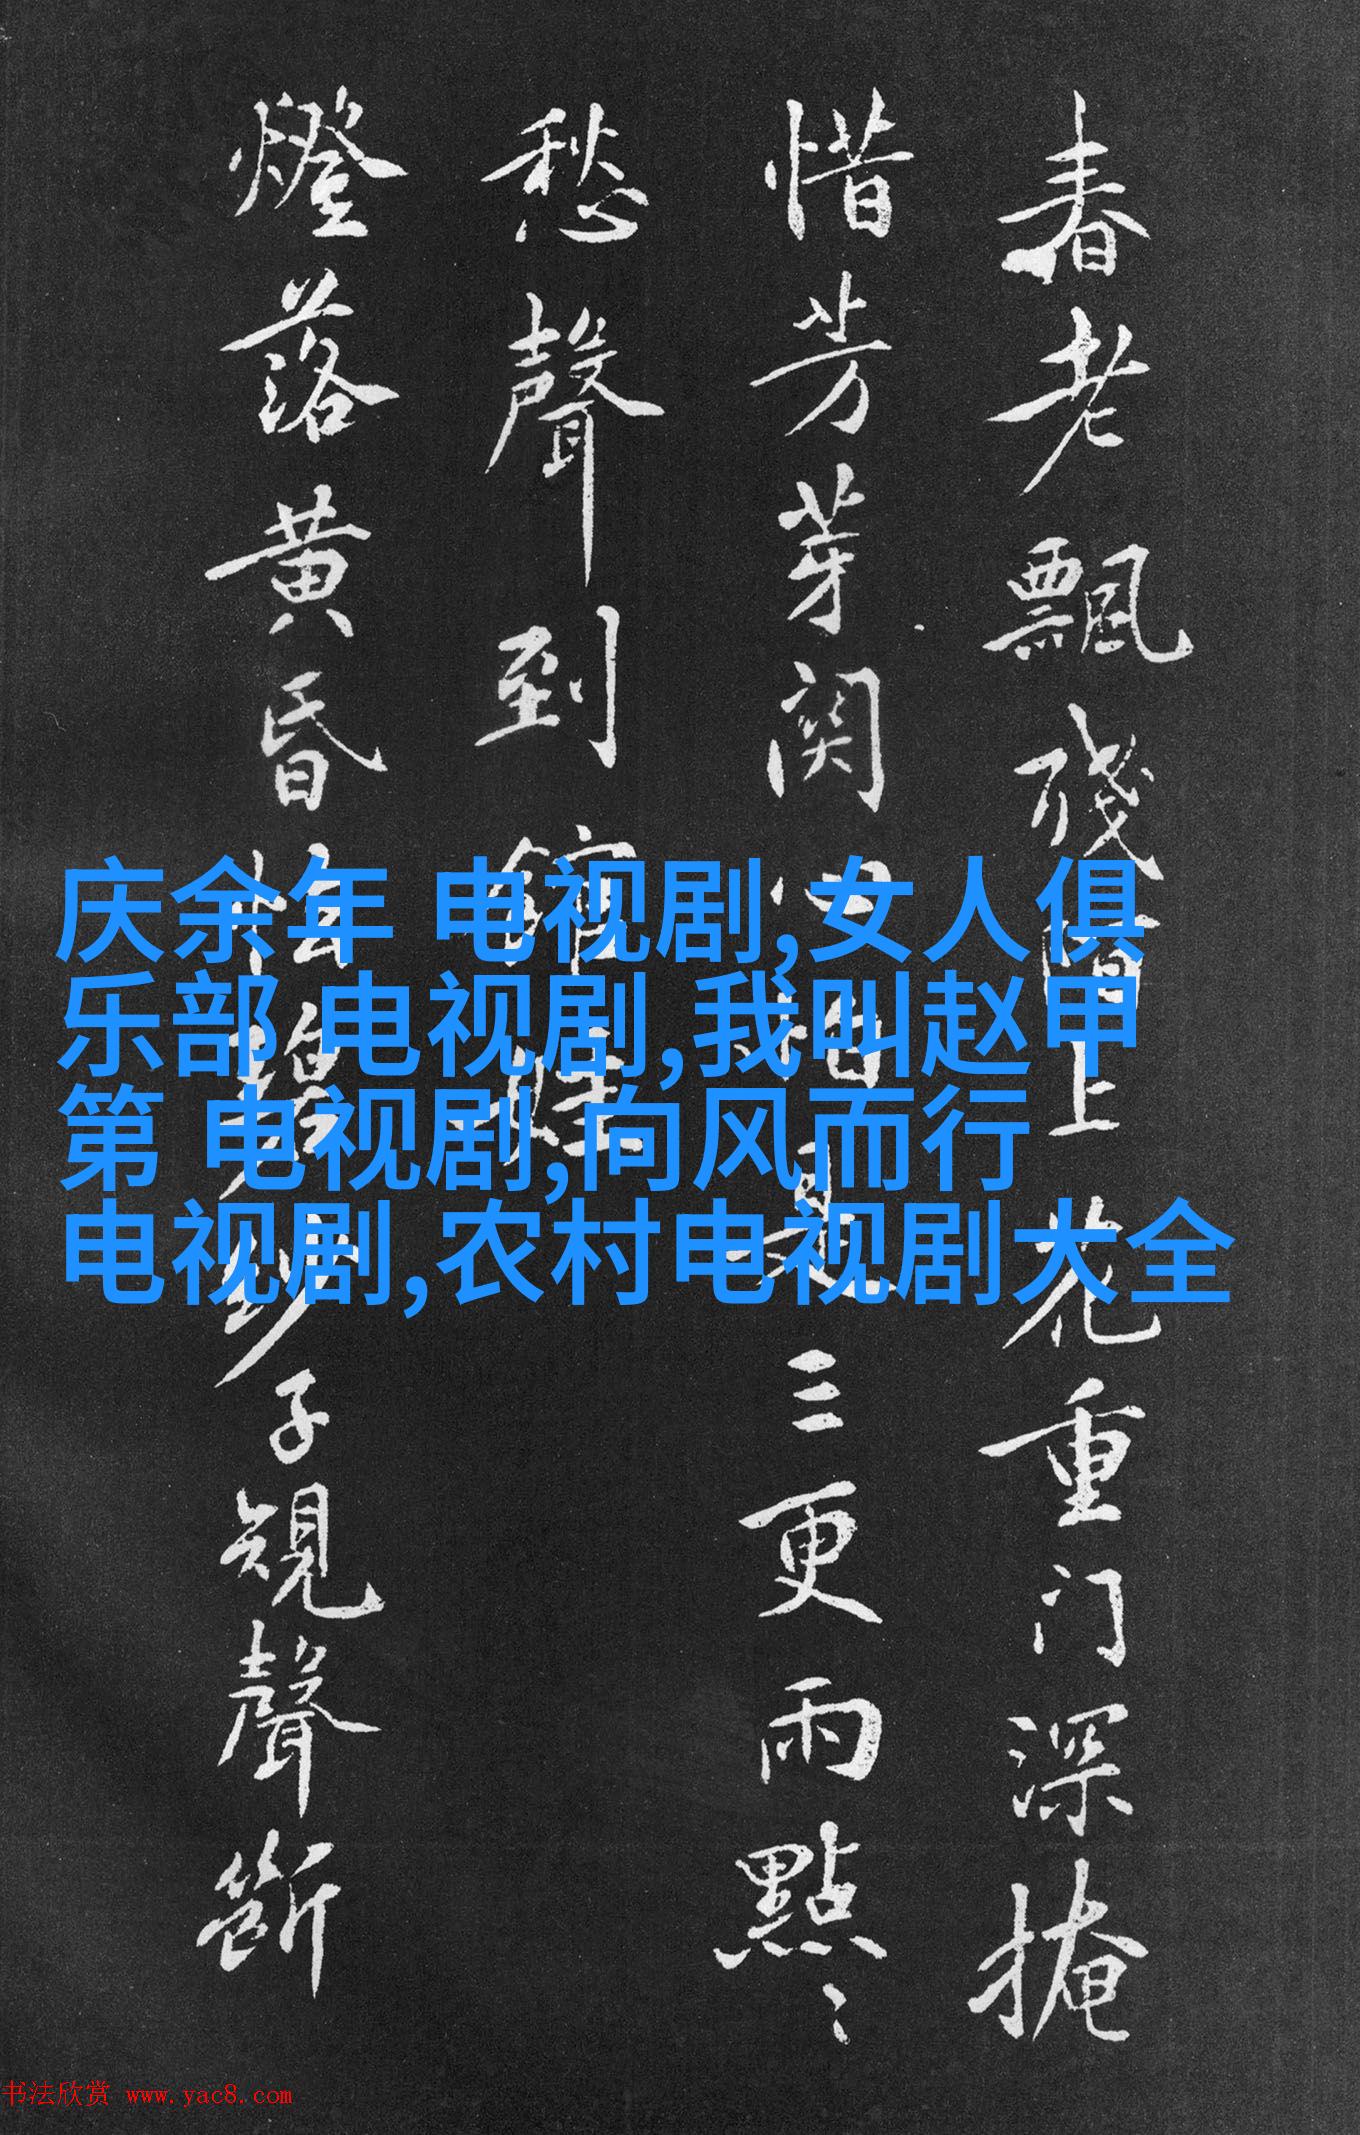 春老飄殘階上花重门深掩
惜芳芽闵 是三更雨點〻
愁聲到館娃
燈落黄昏 子規聲斷
庆余年 电视剧,女人俱
乐部 电视剧,我叫赵甲
第 电视剧,向风而行
电视剧,农村电视剧大全
书法欣赏 www.yac8.com